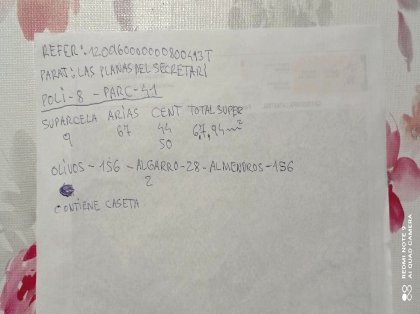 REFER: 12096000000800493T
PARAT: LAS PLANAS DEL SECRETARI
POLI-8-PARC-41
SUPARCELA ARIAS CENT TOTAL SUPER
9 67 44 67,94 m²
50
OLIVOS-156-ALGARRO-28-ALMENDROS-156
2
CONTIENE CASETA
REDMI NOTE 9
AI QUAD CAMERA